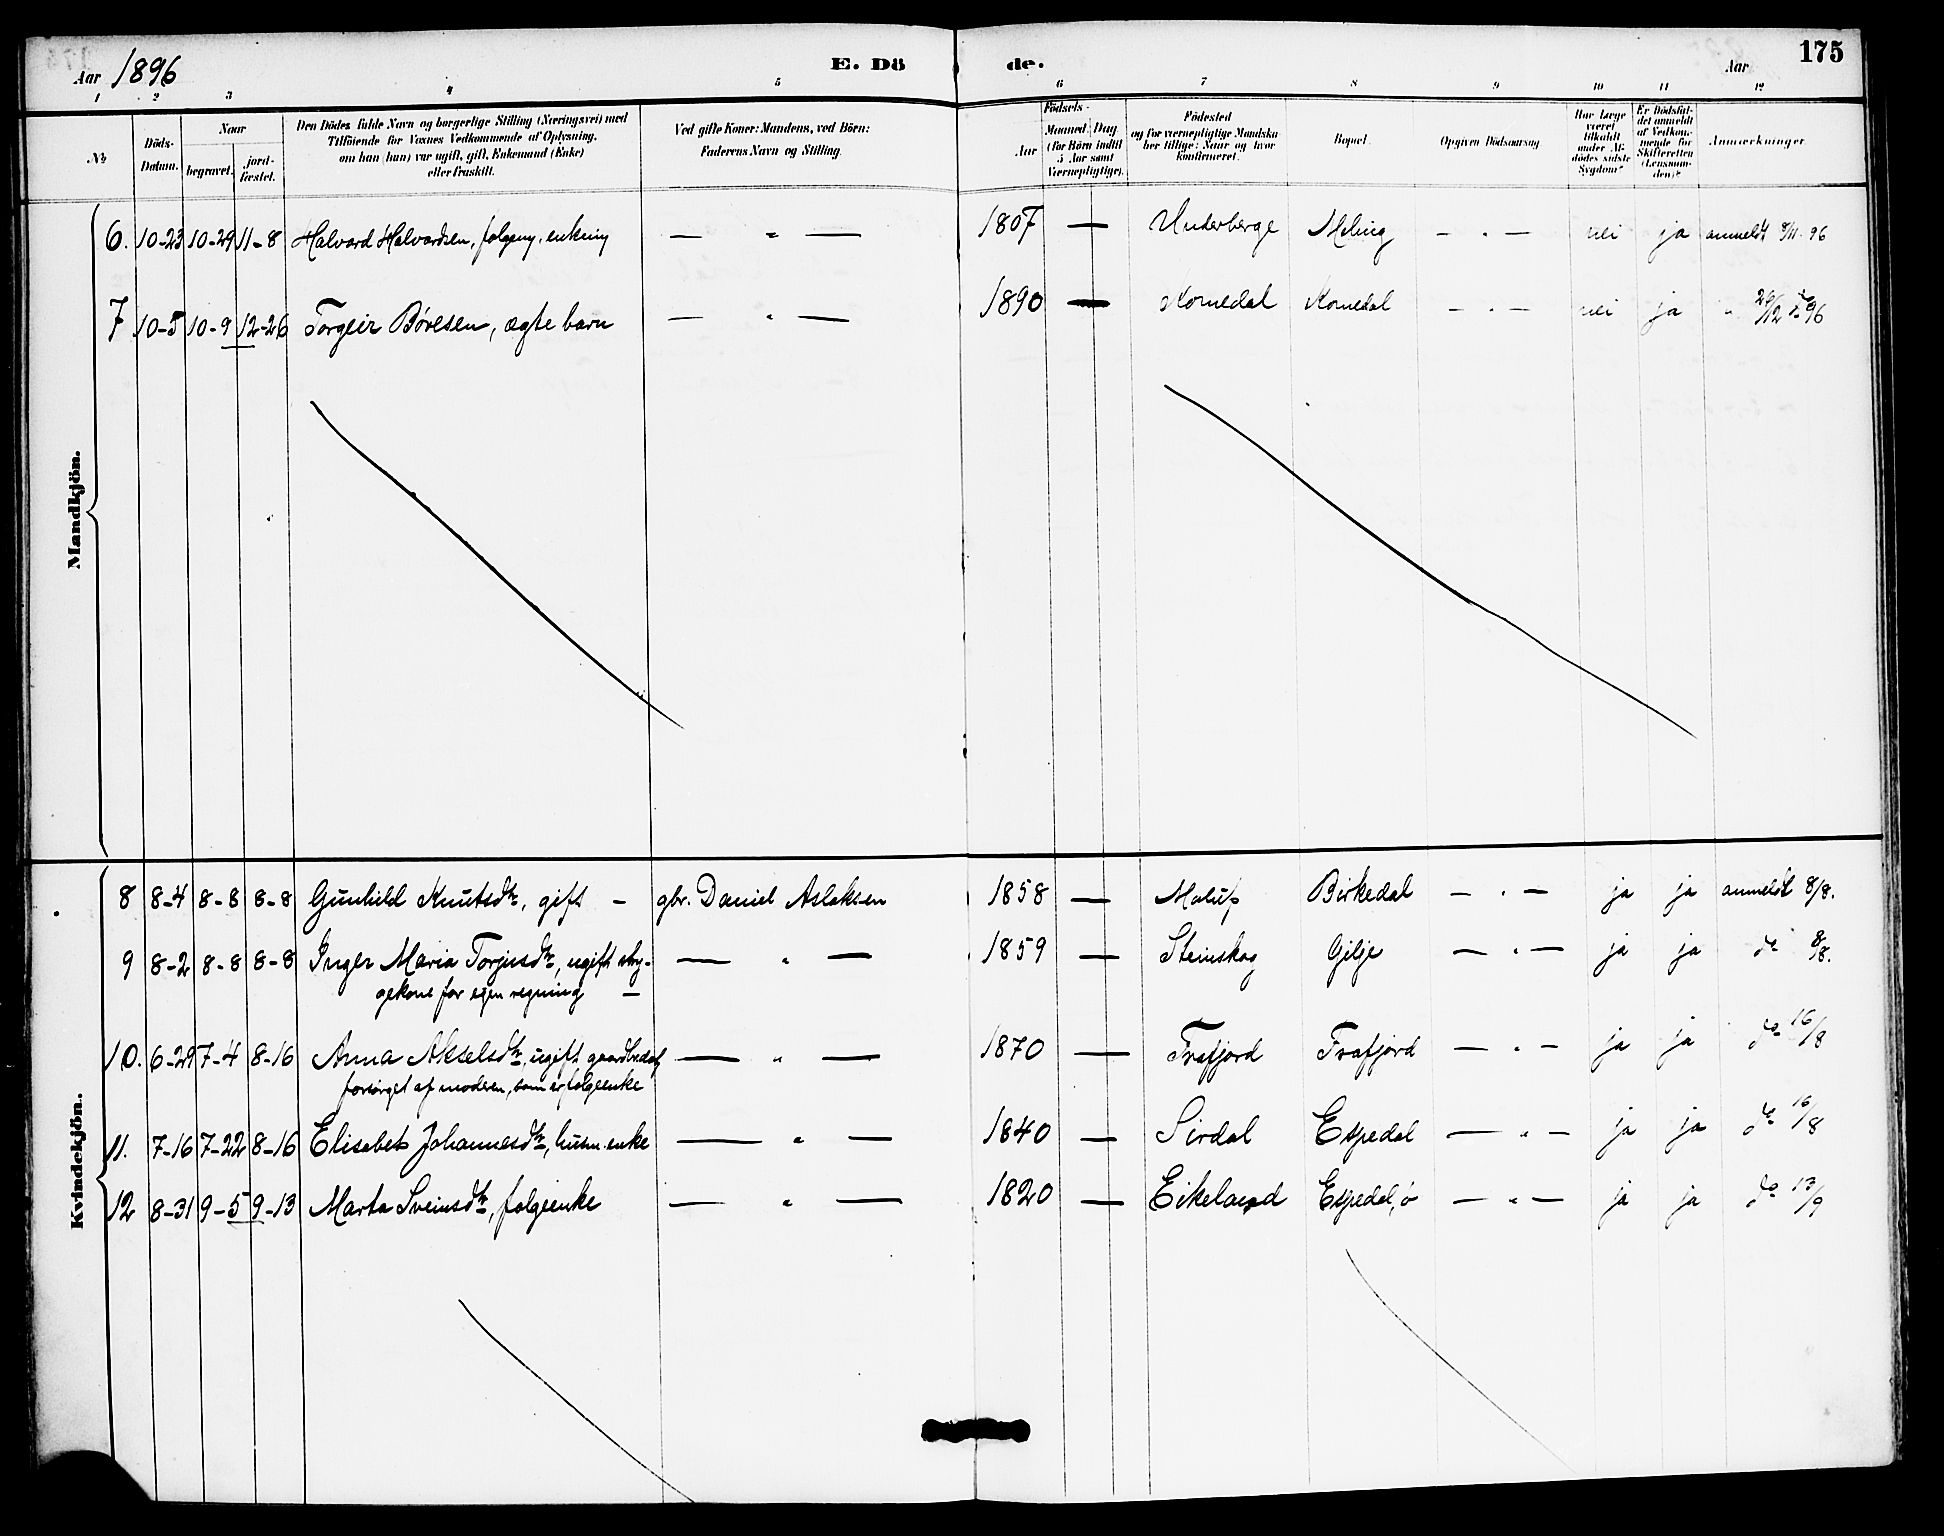 Aar 1896 E. Dö de. Aar 175
1 2 3 4 5 6 7 8 9 10 11 12
№
Döds-
Datum.
Naar
begravet.
jord-
fæstet.
Den Dödes fulde Navn og borgerlige Stilling (Næringsvei) med
Tilföiende for Voxnes Vedkommende af Oplysning,
om han (hun) var ugift, gift, Enkemand (Enke)
eller fraskilt.
Ved gifte Koner: Mandens, ved Börn:
Faderens Navn og Stilling.
Födsels-
Aar
Maaned. Dag
(for Börn indtil
5 Aar samt
Værnepligtige).
Födested
og for værnepligtige Mandskaber
tillige: Naar og hvor
konfirmeret.
Bopæl.
Opgiven Dödsaarsag.
Har Læge
været
tilkaldt
under Afdödes
sidste
Sygdom?
Er Dödsfaldet
anmeldt
af Vedkommende
for
Skifteretten
(Lensmanden)?
Anmærkninger.
Mandkjön.
6. 10-23 10-29 11-8 Halvard Halvardsen, folgem. enkem — " — 1807 — Underberge Meling — " — nei ja anmeldt 8/11. 96
7 10-5 10-9 12-26 Torgeir Børesen, ægte barn — " — 1890 — Komedal Komedal — " — nei ja " 26/12 96
Kvindekjön.
8 8-4 8-8 8-8 Gunhild Knutsdtr, gift — gbr. Daniel Aslaksen 1858 — Malup Birkedal — " — ja ja anmeldt 8/8.
9 8-2 8-8 8-8 Inger Maria Torjusdtr, ugift stry- — " — 1859 — Steinskog Gilje — " — ja ja do 8/8.
gekone for egen regning —
10. 6-29 7-4 8-16 Anna Akselsdtr, ugift — " — 1870 — Frafjord Frafjord — " — ja ja do 16/8
forsørget af moderen, som er folgeenke
11. 7-16 7-22 8-16 Elisabet Johannesdtr, husm. enke — " — 1840 — Sirdal Espedal — " — ja ja do 16/8
12 8-31 9-5 9-13 Marta Sveinsdtr, folgeenke — " — 1820 — Eikeland Espedal, ö — " — ja ja do 13/9